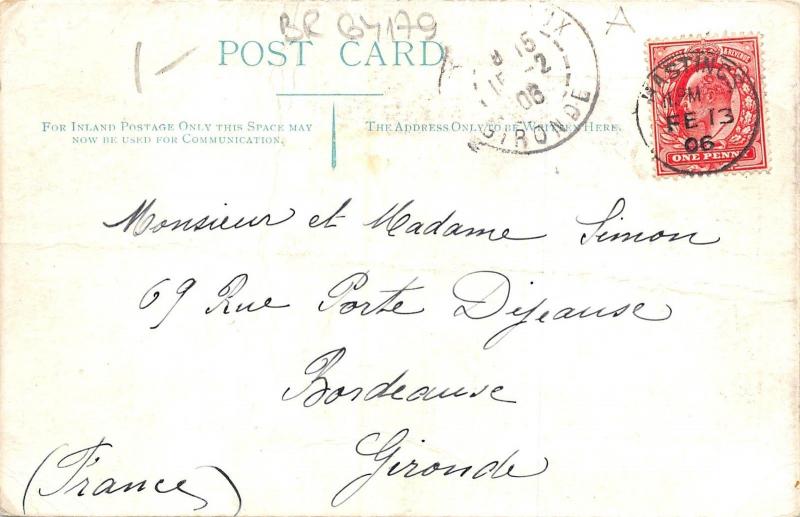 BR 64179
POST CARD
FOR INLAND POSTAGE ONLY THIS SPACE MAY
NOW BE USED FOR COMMUNICATION.
THE ADDRESS ONLY TO BE WRITTEN HERE.
8 15
15-2
06
GIRONDE
A
HASTINGS
FE 13
06
ONE PENNY
Monsieur et Madame Simon
69 Rue Porte Dijeause
Bordeause
Gironde
(France)